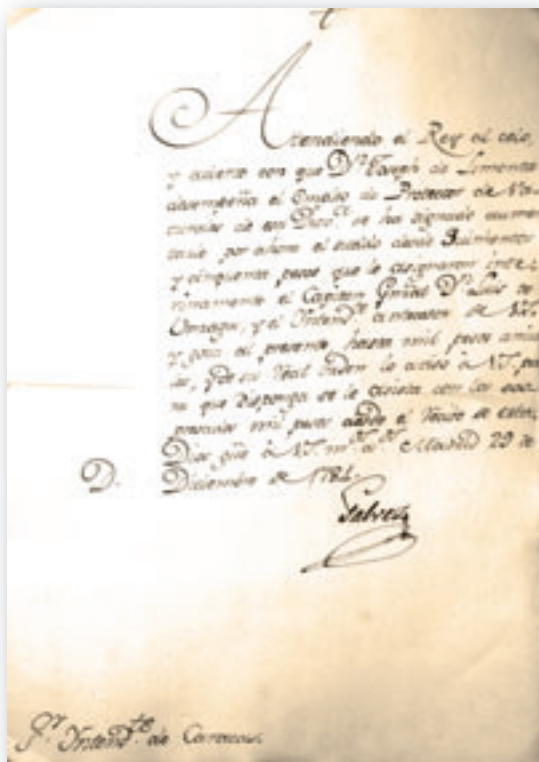 Atendiendo el Rey al celo,
y acierto con que Dn. Joseph de Limonta
desempeña el Empleo de Protector de Na-
turales de esa Provª. se ha dignado aumen-
tarle por ahora el sueldo desde Quinientos
y cinquenta pesos que le asignaron inte-
rinamente el Capitan Gral. Dn. Luis de
Unzaga, y el Intendte. antecesor de V.S.
y goza al presente, hasta mil pesos anua-
les, y de su Real orden lo aviso à V.S. pa-
ra que disponga se le asista con los
mil pesos desde el recivo de esta,
Dios gue. à V.S. ms. as. Madrid 29 de
D. Diciembre de 1784.
Galvez
Sr. Yntendte. de Caracas.